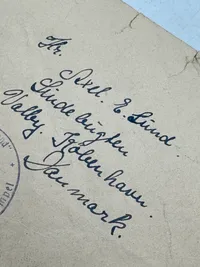 Hr.
Axel. E. Lund.
Lindebugten
Valby. København.
Danmark.